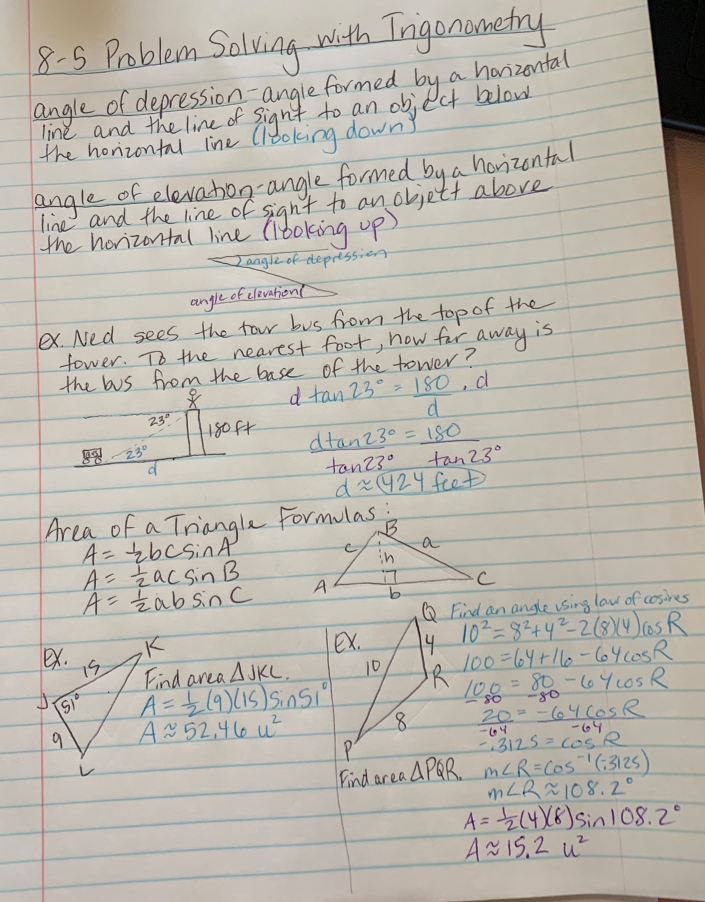 8-5 Problem Solving with Trigonometry
angle of depression - angle formed by a horizontal
line and the line of sight to an object below
the horizontal line (looking down)
angle of elevation - angle formed by a horizontal
line and the line of sight to an object above
the horizontal line (looking up)
angle of depression
angle of elevation
ex. Ned sees the tour bus from the top of the
tower. To the nearest foot, how far away is
the bus from the base of the tower?
23°
180 ft
23°
d
d tan 23° = 180/d · d
d tan 23° / tan 23° = 180 / tan 23°
d ≈ 424 feet
Area of a Triangle Formulas:
A = ½ bc sin A
A = ½ ac sin B
A = ½ ab sin C
B
c
a
h
A
b
C
Ex.
15
K
J
51°
9
L
Find area △JKL.
A = ½(9)(15) sin 51°
A ≈ 52.46 u²
Ex.
Q
10
4
R
8
P
Find area △PQR.
Find an angle using law of cosines
10² = 8² + 4² - 2(8)(4) cos R
100 = 64 + 16 - 64 cos R
100 = 80 - 64 cos R
-80 -80
20 = -64 cos R
-64 -64
-.3125 = cos R
m∠R = cos⁻¹(-.3125)
m∠R ≈ 108.2°
A = ½(4)(8) sin 108.2°
A ≈ 15.2 u²